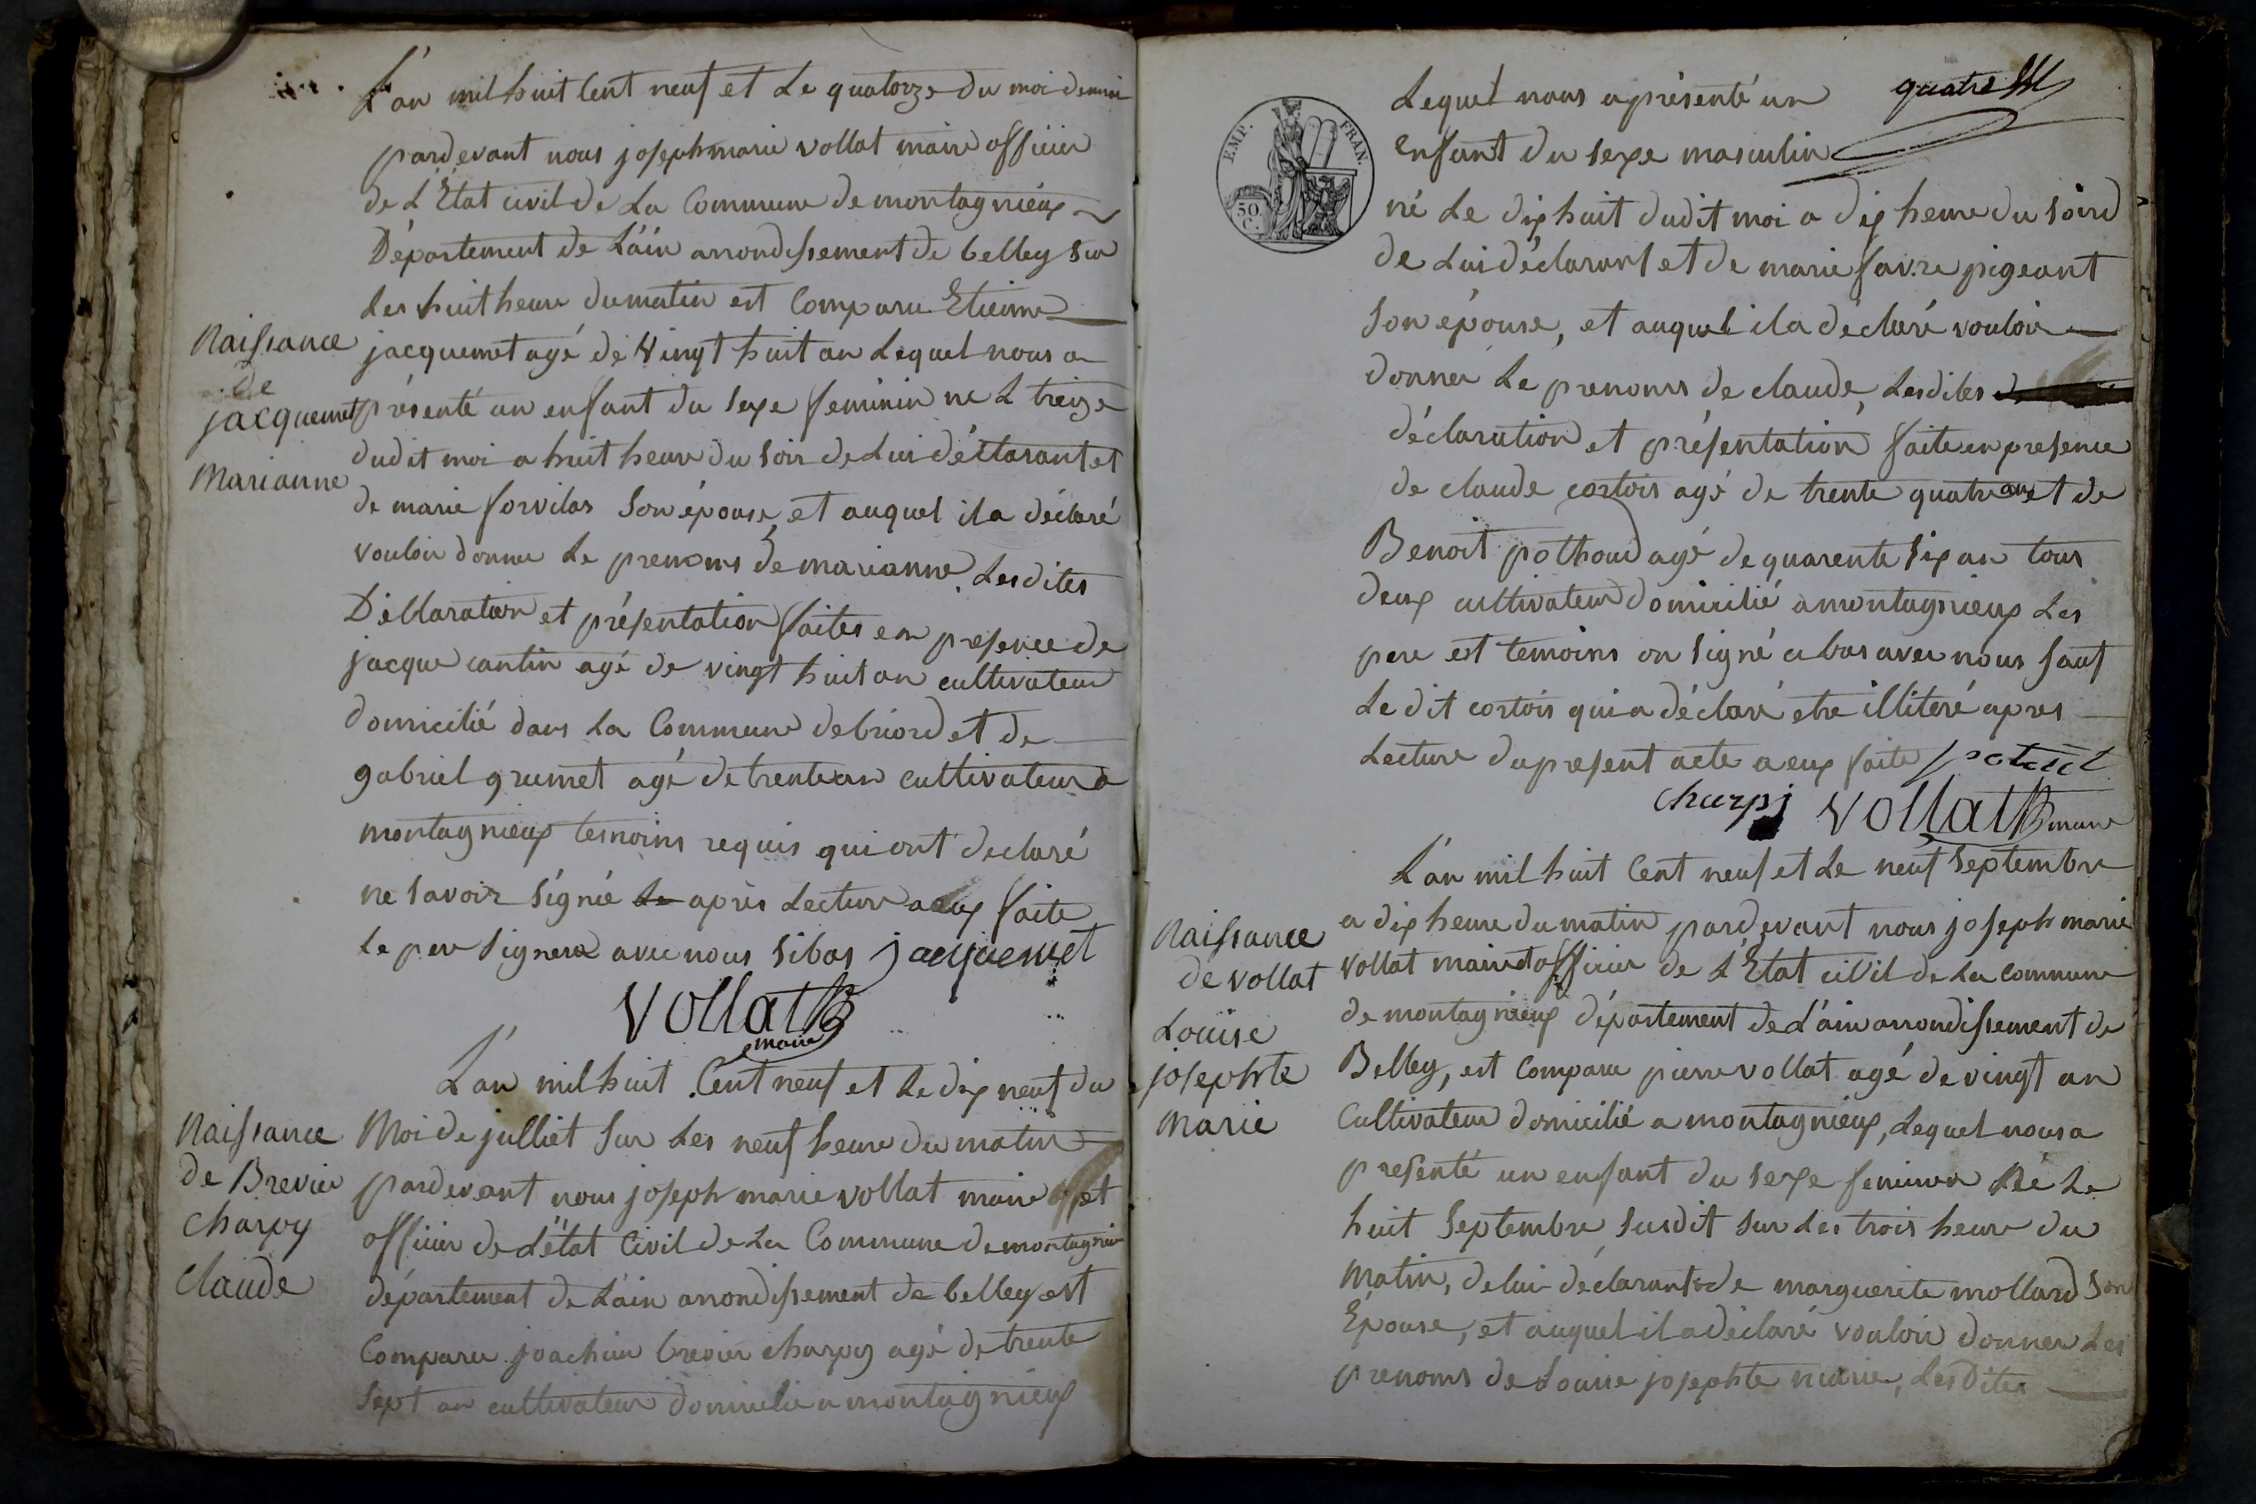 L'an mil huit Cent neuf et Le quatorze du moi de mai
pardevant nous joseph marie vollat maire officier
de L'Etat civil de La Commune de montagnieux
Département de L'ain arrondissement de belley sur
Les huit heure du matin est Comparu Etienne
Naissance
de
jacquemet
Marianne
jacquemet agé de Vingt huit an Lequel nous a
présenté un enfant du sexe feminin ne L treize
dudit moi a huit heure du soir de Lui déclarant et
de marie forvilas son épouse, et auquel il a déclaré
vouloir donner Le prenoms de marianne. Lesdites
Déclaration et présentation faites en presence de
jacque cantin agé de vingt huit an cultivateur
domicilié dans La Commune de briord et de
gabriel grumet agé de trente an cultivateur a
montagnieux temoins requis qui ont declaré
ne savoir signé Le après Lecture a eux faite
Le pere signera avec nous si bas jacquemet
Vollat
maire
L'an mil huit Cent neuf et Le dix neuf du
Naissance
de Brevier
Charpy
Claude
Moi de julliet sur Les neuf heure du matin
pardevant nous joseph marie vollat maire et
officier de L'état Civil de La Commune de montagnieux
département de L'ain arrondissement de belley est
Comparu joachim brevier charpy agé de trente
sept an cultivateur domicilié a montagnieux
quatre
EMP. FRAN.
50 C.
Lequel nous a présenté un
Enfant du sexe masculin
né Le dix huit dudit moi a dix heure du soir
de Lui déclarant et de marie favre pigeant
son épouse, et auquel il a déclaré vouloir
donner Le prenoms de claude, Lesdites
déclaration et présentation faite en presence
de claude cortois agé de trente quatre an et de
Benoit pothoud agé de quarente six an tous
deux cultivateur domicilié a montagnieux Les
pere est temoins on signé a bas avec nous sauf
Le dit cortois qui a déclaré etre illiteré apres
Lecture du present acte a eux faite
charpi Vollat maire
L'an mil huit Cent neuf et Le neuf septembre
Naissance
de vollat
Louise
josephte
Marie
a dix heure du matin pardevant nous joseph marie
vollat maire et officier de L'Etat civil de La commune
de montagnieux département de L'ain arrondissement de
Belley, est Comparu pierre vollat agé de vingt an
Cultivateur domicilié a montagnieux, Lequel nous a
presenté un enfant du sexe feminin Né Le
huit septembre susdit sur Les trois heure du
Matin, de Lui déclarant et de marguerite mollard son
Épouse, et auquel il a déclaré vouloir donner Les
prenoms de Louise josephte marie, Lesdites